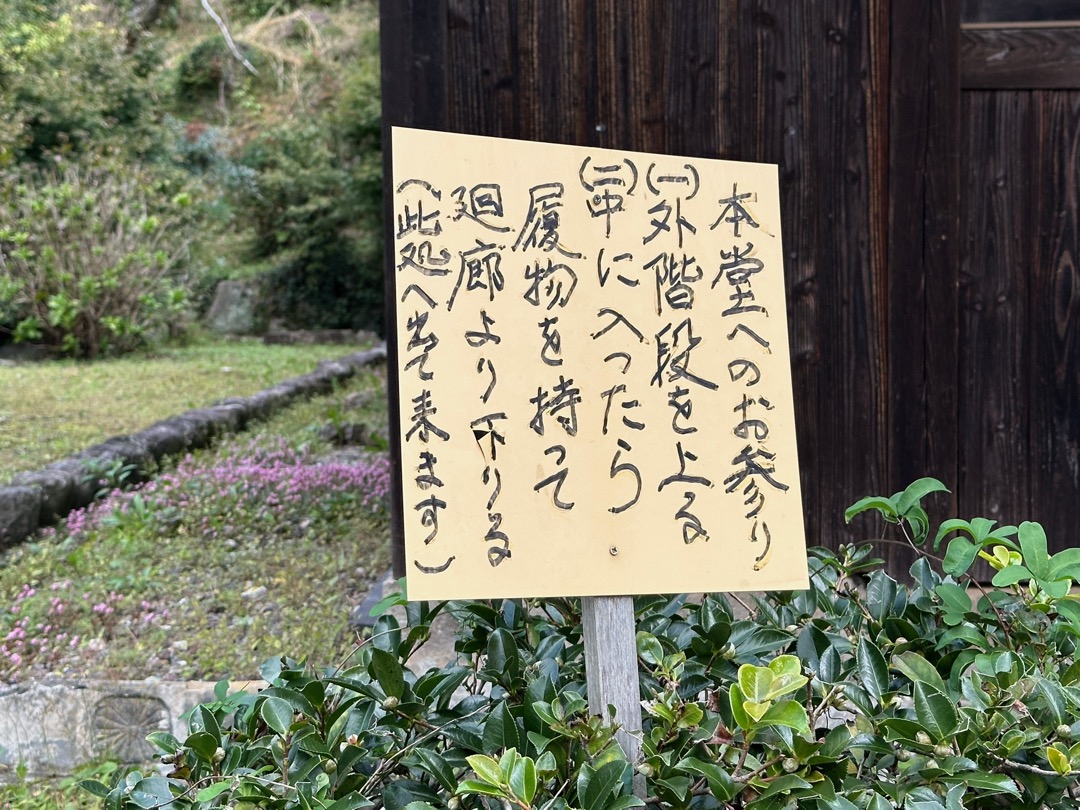 本堂へのお参り
(一)外階段を上る
(二)中に入ったら
履物を持って
廻廊より下りる
(此処へ出て来ます)